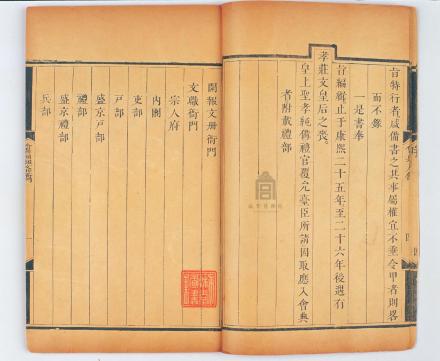 旨特行者咸備書之其事屬權宜不垂令甲者則畧
而不錄
一是書奉
旨編輯止于康熙二十五年至二十六年後遇有
孝莊文皇后之喪
皇上聖孝純備禮官覆元臺臣所請因取應入會典
者附載禮部
開報文册衙門
文職衙門
宗人府
內閣
吏部
戶部
盛京戶部
禮部
盛京禮部
兵部